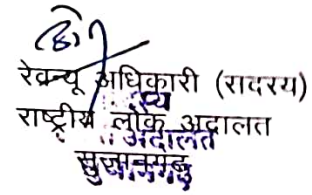 रेवन्यू अधिकारी (सदस्य)
राष्ट्रीय लोक अदालत
अदालत
सुजानगढ़